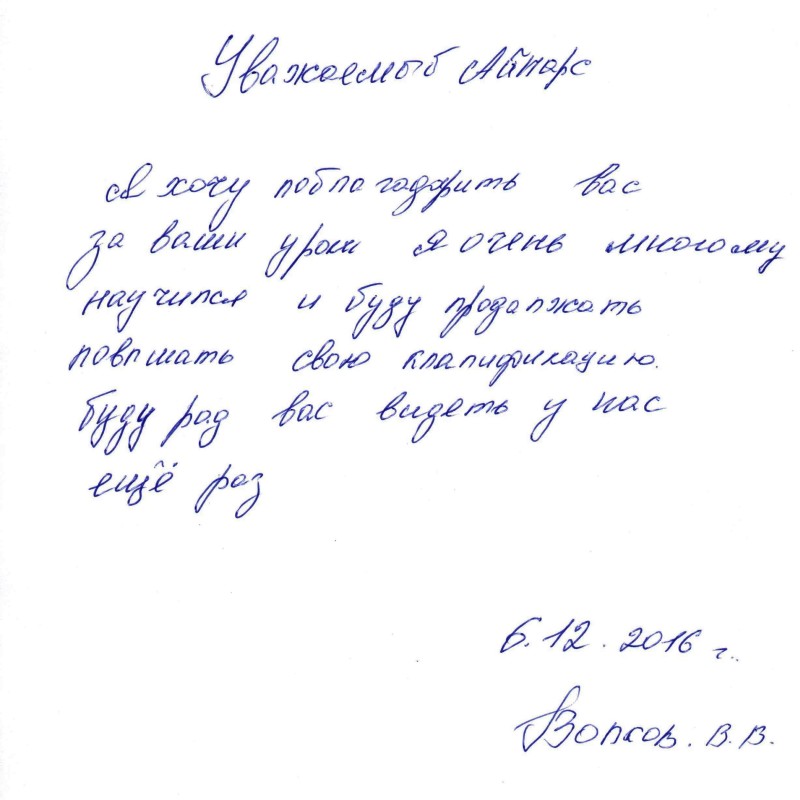 Уважаемый Айпарс
Я хочу поблагодарить вас
за ваши уроки я очень многому
научился и буду продалжать
повышать свою клалификацию.
буду рад вас видеть у нас
ещё раз
6.12.2016 г.
Волков. В.В.